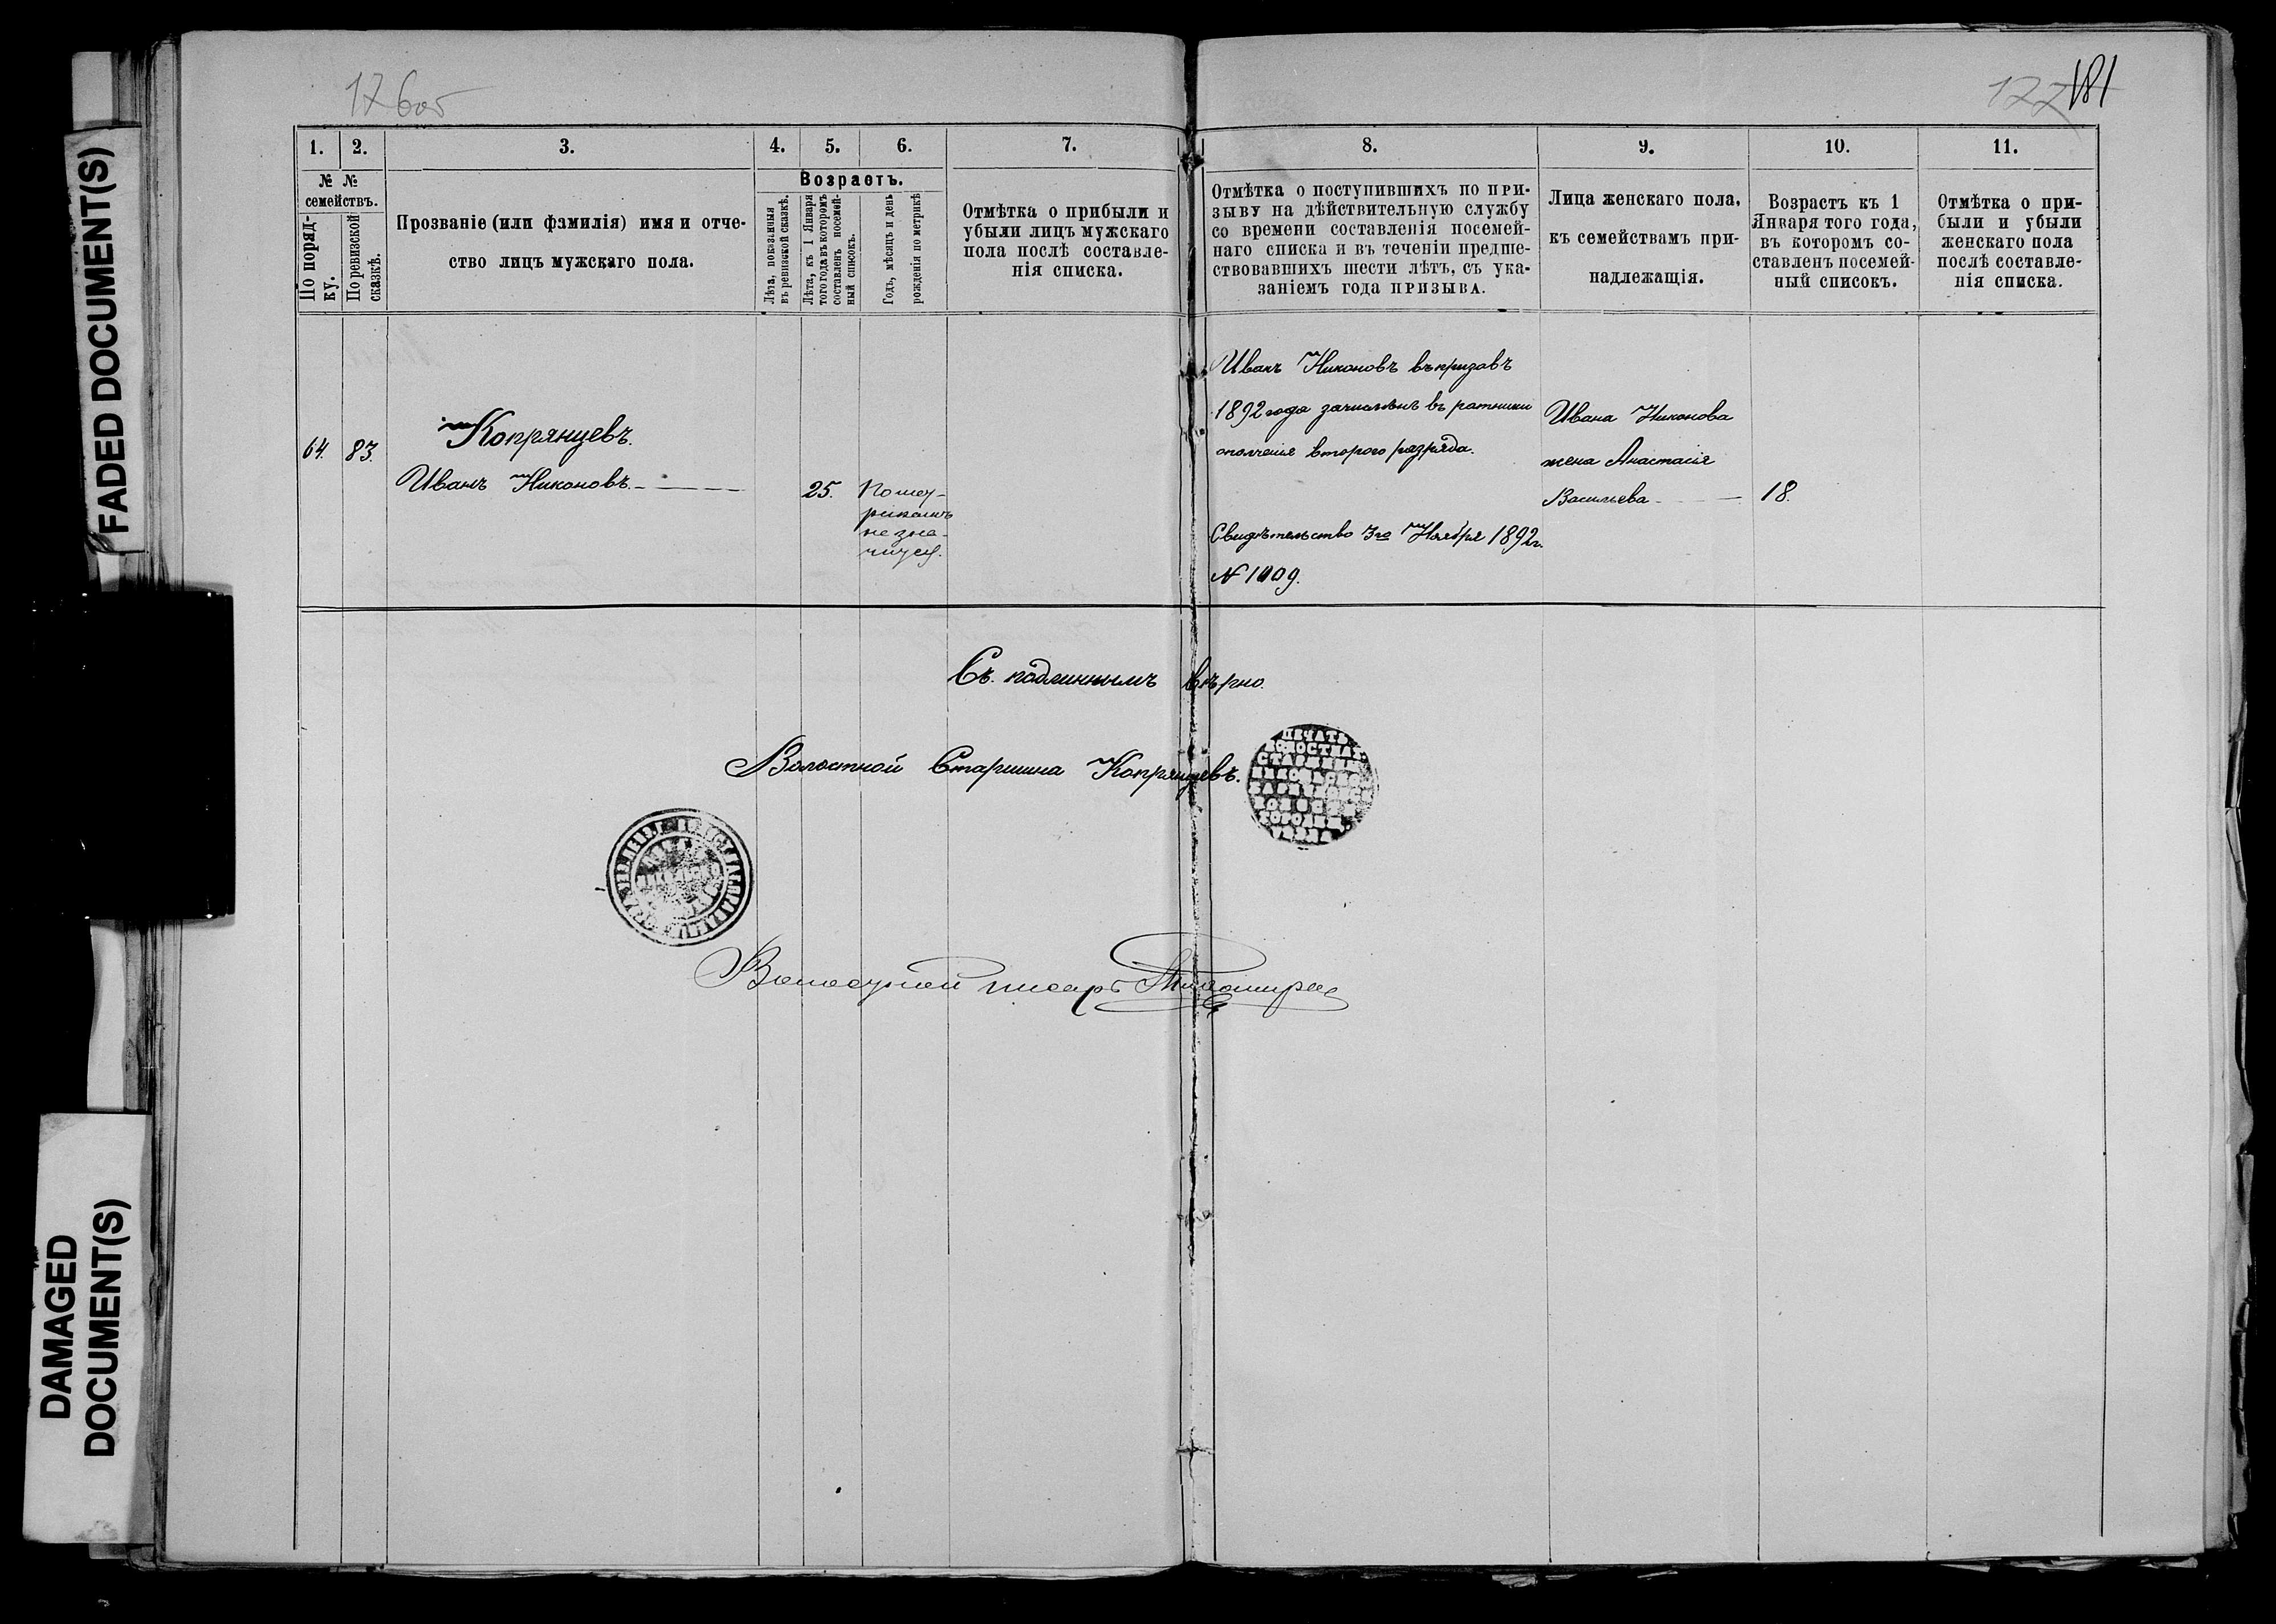 FADED DOCUMENT(S)
DAMAGED
DOCUMENT(S)
176об
177
181
1.
2.
3.
4.
5.
6.
7.
8.
9.
10.
11.
№ №
семействъ.
По поряд-
ку.
По ревизской
сказкѣ.
Прозваніе (или фамилія) имя и отче-
ство лицъ мужскаго пола.
Возрастъ.
Лѣта, показанныя
въ ревизской сказкѣ.
Лѣта, къ 1 Января
того года въ которомъ
составленъ посемей-
ный списокъ.
Годъ, мѣсяцъ и день
рожденія по метрикѣ
Отмѣтка о прибыли и
убыли лицъ мужскаго
пола послѣ составле-
нія списка.
Отмѣтка о поступившихъ по при-
зыву на дѣйствительную службу
со времени составленія посемей-
наго списка и въ теченіи предше-
ствовавшихъ шести лѣтъ, съ ука-
заніемъ года призыва.
Лица женскаго пола,
къ семействамъ при-
надлежащія.
Возрастъ къ 1
Января того года,
въ которомъ со-
ставленъ посемей-
ный списокъ.
Отмѣтка о при-
были и убыли
женскаго пола
послѣ составле-
нія списка.
64.
83.
Копрянцевъ.
Иванъ Никоновъ.
25.
По мет-
рикамъ
не зна-
чится.
Иванъ Никоновъ въ призывъ
1892 года зачисленъ въ ратники
ополченія второго разряда.
Свидѣтельство 3го Ноября 1892г.
№ 1009.
Ивана Никонова
жена Анастасія
Васильева
18.
Съ подлиннымъ вѣрно.
Волостной Старшина Копрянцевъ.
ПЕЧАТЬ
ВОЛОСТНАГ.
СТАРШИНЫ
УѢЗДА
Волостной писарь